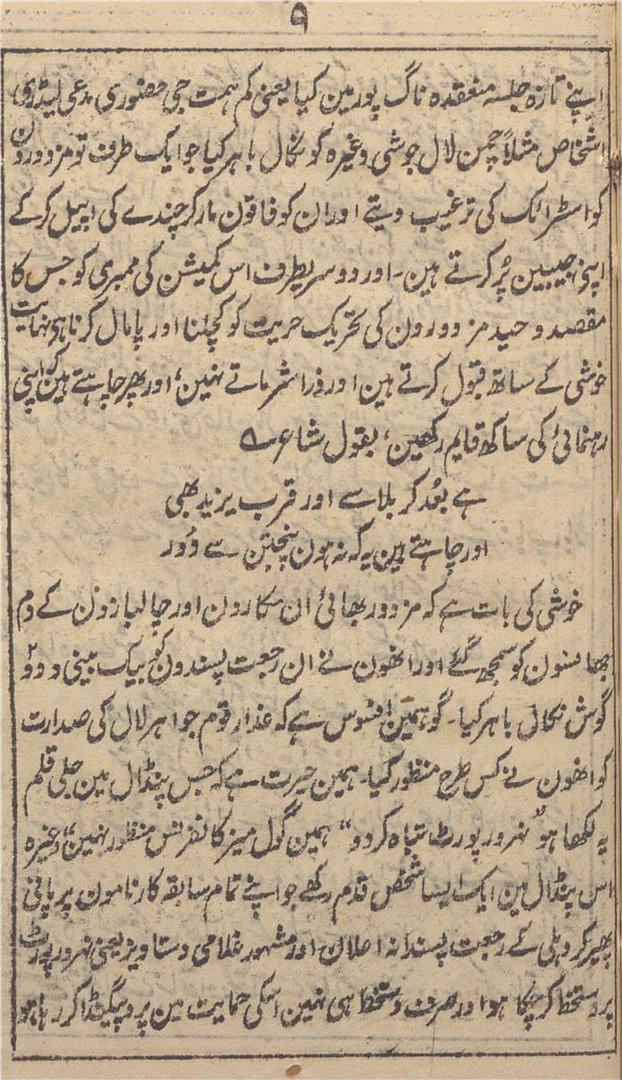 ۹
اپنے تازہ جلسہ منعقدہ ناگ پور مین کیا یعنی کم ہمت جی حضوری، مدعی لیڈری
اشخاص مثلاً چمن لال جوشی وغیرہ کو نکال باہر کیا جو ایک طرف تو مزدورون
کو اسٹرائک کی ترغیب دیتے اور ان کو فاقون مار کر چندے کی اپیل کر کے
اپنی جیبین پُر کرتے ہین۔ اور دوسریطرف اس کمیشن کی ممبری کو جس کا
مقصد وحید مزدورون کی تحریک حریت کو کچلنا اور پامال کرنا ہی نہایت
خوشی کے ساتھ قبول کرتے ہین اور ذرا شرماتے نہین، اور پھر چاہتے ہین کہ اپنی
رہنمائی کی ساکھ قایم رکھین، بقول شاعر
ہے بعُد کربلا سے اور قرب یزید بھی
اور چاہتے ہین یہ کہ نہ ہون پنجتن سے دُور
خوشی کی بات ہے کہ مزدور بھائی ان مکارون اور جالبازون کے دم
جھانسون کو سمجھ گئے اور انھون نے ان رجعت پسندون کو بیک بینی و دو
گوش نکال باہر کیا۔ گو ہمین افسوس ہے کہ غدار قوم جواہر لال کی صدارت
کو انھون نے کس طرح منظور کیا۔ ہمین حیرت ہے کہ جس پنڈال مین جلی قلم
یہ لکھا ہو "نہرو رپورٹ تباہ کردو" ہمین گول میز کانفرنس منظور نہین" وغیرہ
اس پنڈال مین ایک ایسا شخص قدم رکھے جو اپنے تمام سابقہ کارنامون پر پانی
پھیر کر دہلی کے رجعت پسندانہ اعلان اور مشہور غلامی دستاویز یعنی نہرو رپورٹ
پر دستخط کر چکا ہو اور صرف دستخط ہی نہین اسکی حمایت مین پروپیگنڈا کر رہا ہو